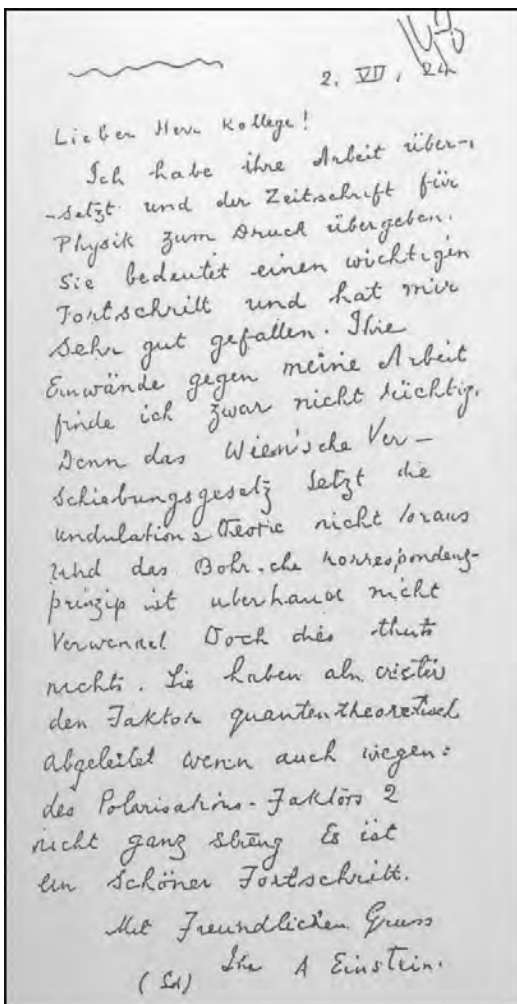 2. VII, 24
Lieber Herr Kollege!
Ich habe ihre Arbeit über-
-setzt und der Zeitschrift für
Physik zum Druck übergeben.
Sie bedeutet einen wichtigen
Fortschritt und hat mir
sehr gut gefallen. Ihre
Einwände gegen meine Arbeit
finde ich zwar nicht richtig.
Denn das Wien'sche Ver-
schiebungsgesetz setzt die
undulations theorie nicht voraus
und das Bohr.che Korrespondenz-
prinzip ist uberhaupt nicht
verwendet Doch dies thuts
nichts. Sie haben als erster
den Faktor quantentheoretisch
abgeleitet wenn auch wegen
des Polarisations-Faktors 2
nicht ganz streng Es ist
ein schöner Fortschritt.
Mit Freundlichen Gruss
Ihr A Einstein.
(Sd)